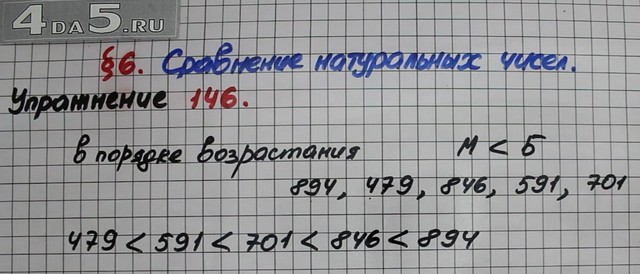 4DA5.RU
§6. Сравнение натуральных чисел.
Упражнение 146.
в порядке возрастания М < Б
894, 479, 846, 591, 701
479 < 591 < 701 < 846 < 894